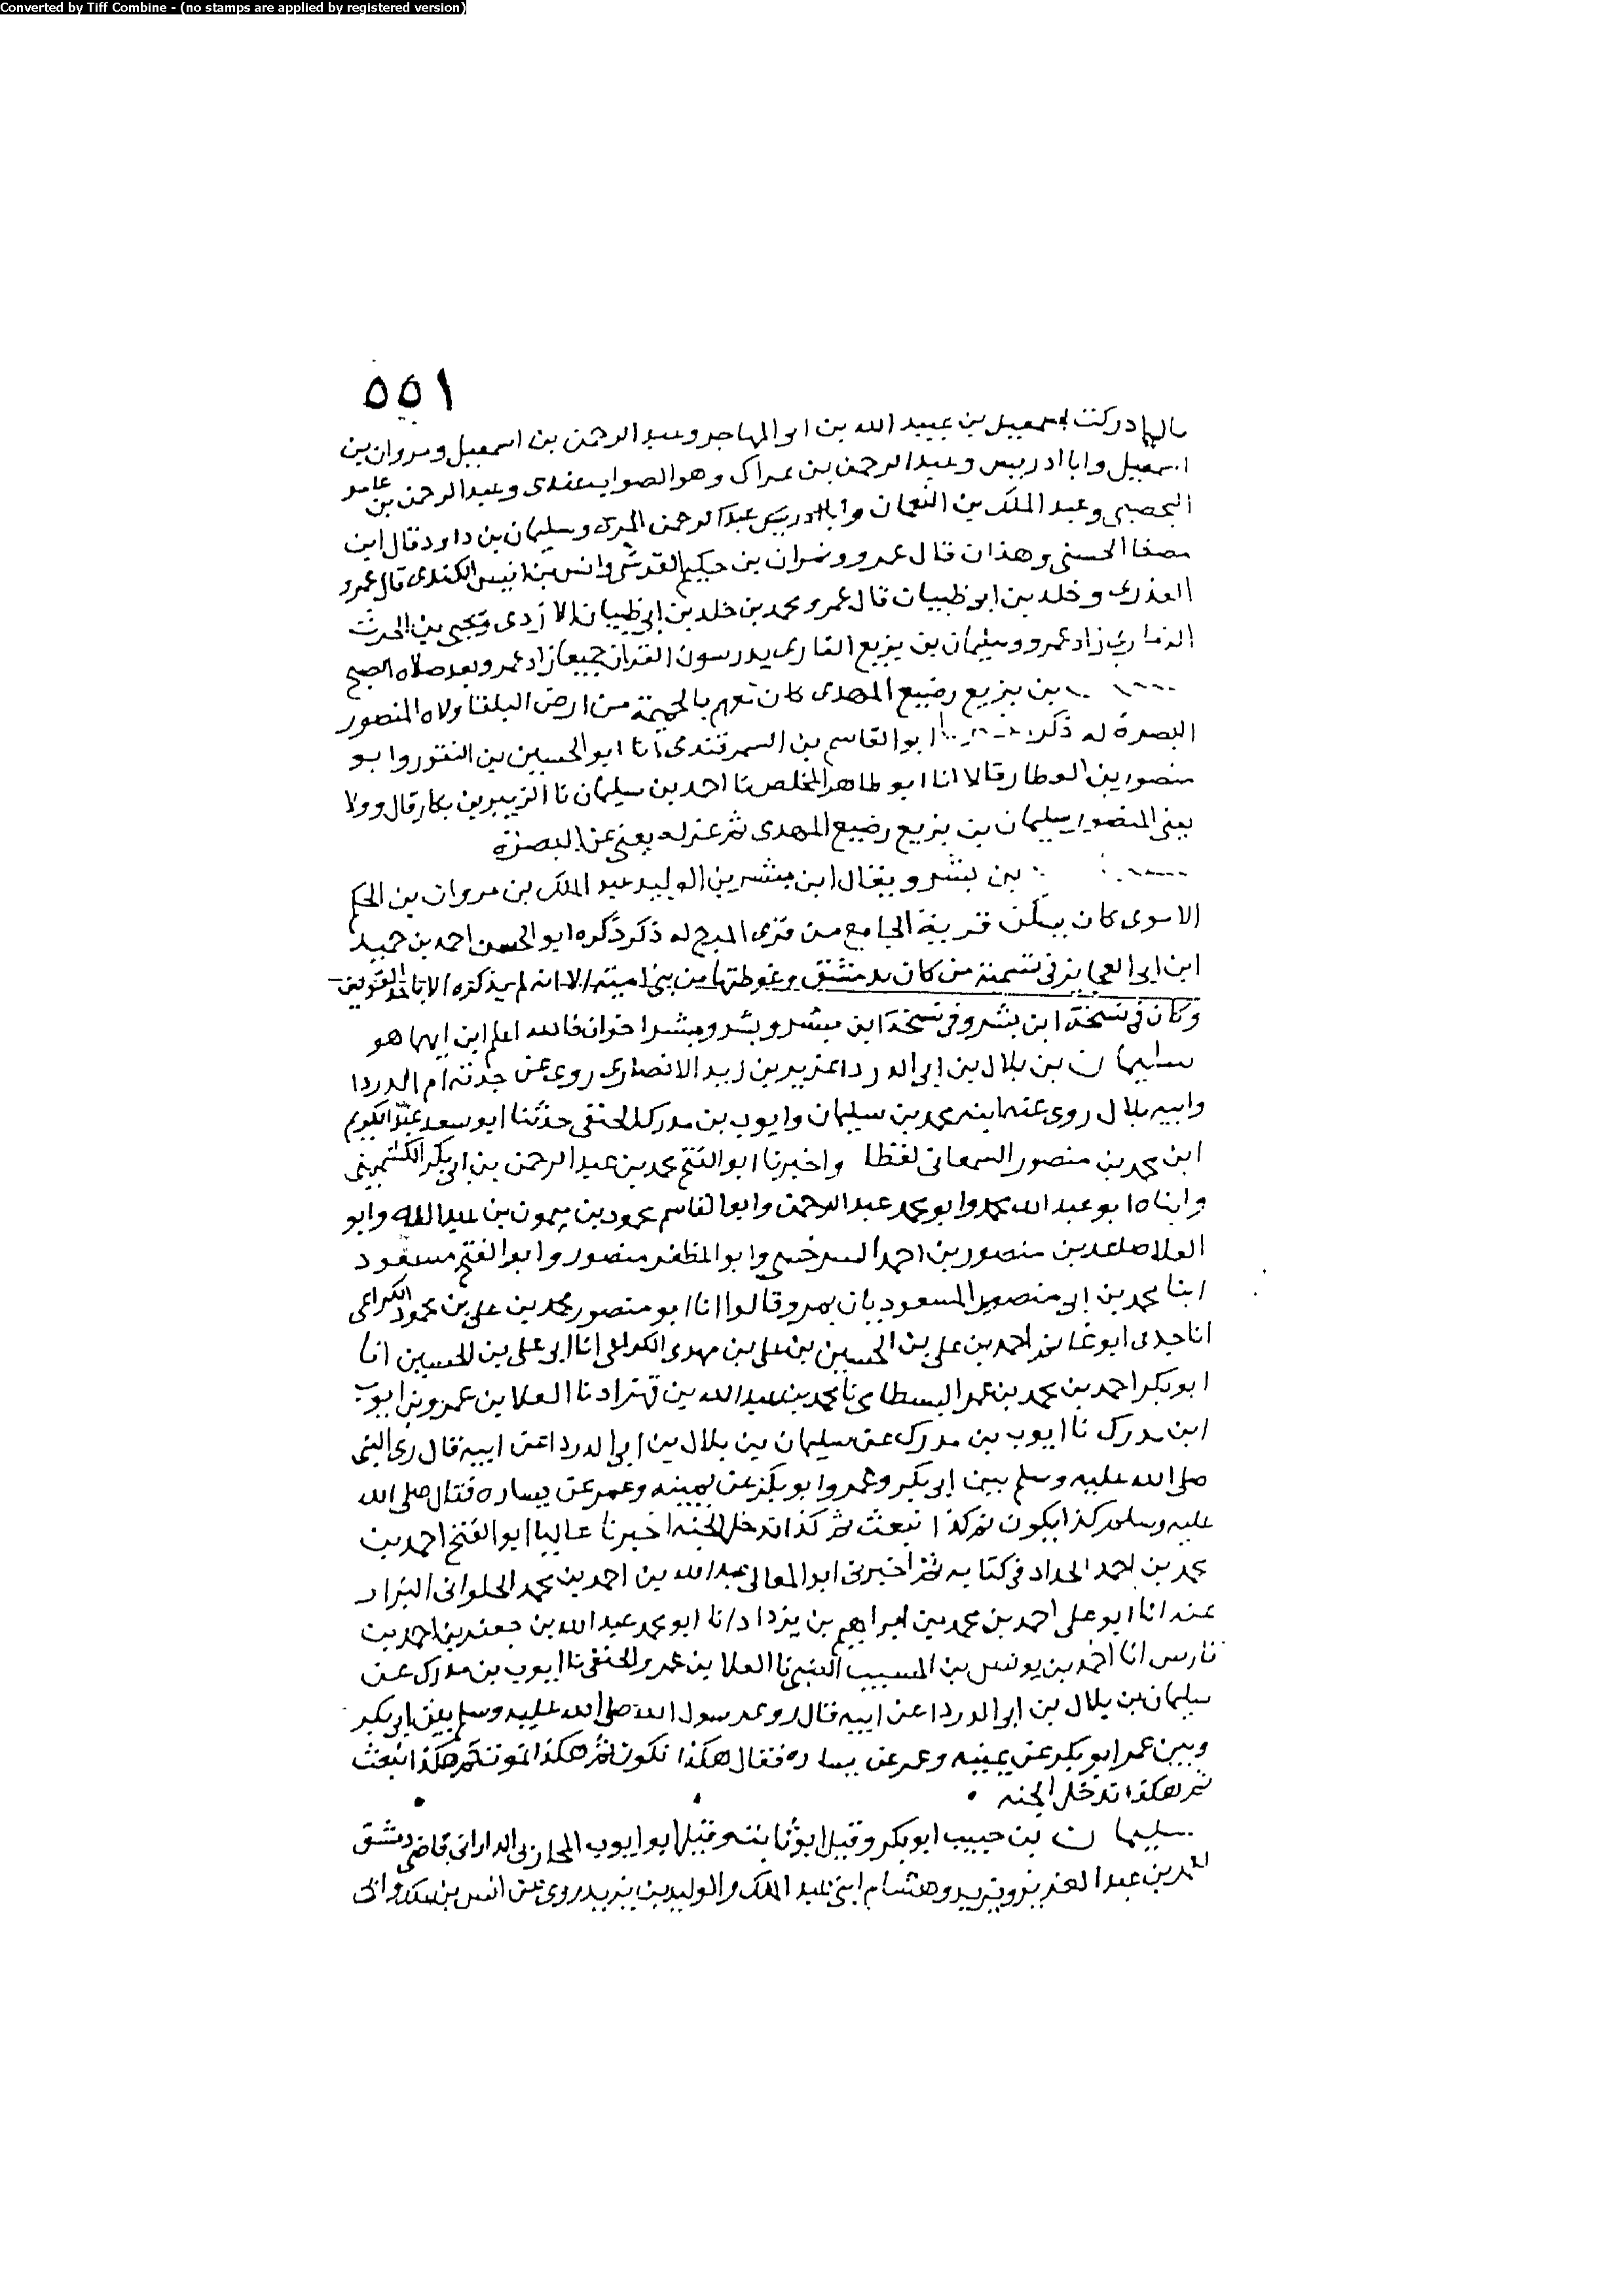 Converted by Tiff Combine - (no stamps are applied by registered version)
٥٥١
ادركت اسمعيل بن عبيد الله بن ابى المهاجر وعبد الرحمن بن اسمعيل ومروان بن
اسمعيل وابا ادريس وعبد الرحمن بن عراك وهو الصواب عندى وعبد الرحمن بن عامر
اليحصبى وعبد الملك بن النعمان وابا ادريس عبد الرحمن المرى وسليمان بن داود قال ابن
مصفا الحسنى وهذان قال عمرو ونمران بن حكيم القرشى وانس بن انيس الكندى قال عمرو
العذرى وخلد بن ابى ظبيان قال عمرو محمد بن خلد بن ابى ظبيان الازدى ويحيى بن الحرث
الذمارى زاد عمرو وسليمان بن بزيع القارى يدرسون القران جميعا زاد عمرو بعد صلاه الصبح
بن بزيع رضيع المهدى كان معهم بالحميمة من ارض البلقا ولاه المنصور
البصرة له ذكر ابو القاسم بن السمرقندى انا ابو الحسين بن النقور وابو
منصور بن العطار قالا انا ابو طاهر المخلص نا احمد بن سليمان نا الزبير بن بكار قال وولا
يعنى المنصور سليمان بن بزيع رضيع المهدى ثم عزله يعنى عن البصرة
بن بشر ويقال ابن مبشر بن الوليد عبد الملك بن مروان بن الحكم
الاموى كان يسكن قرية الجامع من قرى المرج له ذكر ذكره ابو الحسن احمد بن حميد
ابن ابى العجايز فى تسمية من كان بدمشق وغوطتها من بنى امية الا انه لم يذكره الا
وكان فى نسخة ابن بشر وفى نسخة ابن مبشر وبشر ومبشر اخوان فالله اعلم ابن ايهما هو
سليمان بن بلال بن ابى الدرداء عويمر بن زيد الانصارى روى عن جدته ام الدردا
وابيه بلال روى عنه ابنه محمد بن سليمان وايوب بن مدرك الحنفى حدثنا ابو سعد عبد الكريم
ابن محمد بن منصور السمعانى لفظا واخبرنا ابو الفتح محمد بن عبد الرحمن بن ابى بكر الكشميهنى
وابناه ابو عبد الله محمد وابو محمد عبد الرحمن وابو القاسم محمود بن ميمون بن عبد الله وابو
العلا صاعد بن منصور بن احمد السرخسى وابو المظفر منصور وابو الفتح مسعود
ابنا محمد بن ابى منصور المسعوديان بمرو قالوا انا ابو منصور محمد بن على بن محمود الكراعى
انا جدى ابو غانم احمد بن على بن الحسين بن على بن مهدى الكراعى انا ابى على بن الحسين انا
ابو بكر احمد بن محمد بن عمر البسطامى نا محمد بن عبد الله بن قهزاد نا العلا بن عمرو نا ايوب
ابن مدرك نا ايوب بن مدرك عن سليمان بن بلال بن ابى الدردا عن ابيه قال رى النبى
صلى الله عليه وسلم بين ابى بكر وعمر وابو بكر عن يمينه وعمر عن يساره فقال صلى الله
عليه وسلم كذا يكون ثم كذا نبعث ثم كذا ندخل الجنه اخبرنا عاليا ابو الفتح احمد بن
محمد بن احمد الحداد فى كتابه ثم اخبرنى ابو المعالى عبد الله بن احمد بن محمد الحلوانى البزار
عنه انا ابو على احمد بن محمد بن ابراهيم بن يزداد انا ابو محمد عبد الله بن جعفر بن احمد بن
فارس انا احمد بن يونس بن المسيب الضبى نا العلا بن عمرو الحنفى نا ايوب بن مدرك عن
سليمان بن بلال بن ابى الدردا عن ابيه قال رسول الله صلى الله عليه وسلم بين ابى بكر
وبين عمر ابو بكر عن يمينه وعمر عن يساره فقال هكذا نكون ثم هكذا نموت ثم هكذا نبعث
ثم هكذا ندخل الجنه
سليمان بن حبيب ابو بكر وقيل ابو ثابت وقيل ابو ايوب المحاربى الدارانى قاضى دمشق
لعمر بن عبد العزيز ويزيد وهشام ابنى عبد الملك والوليد بن يزيد روى عن انس بن ملك وابى